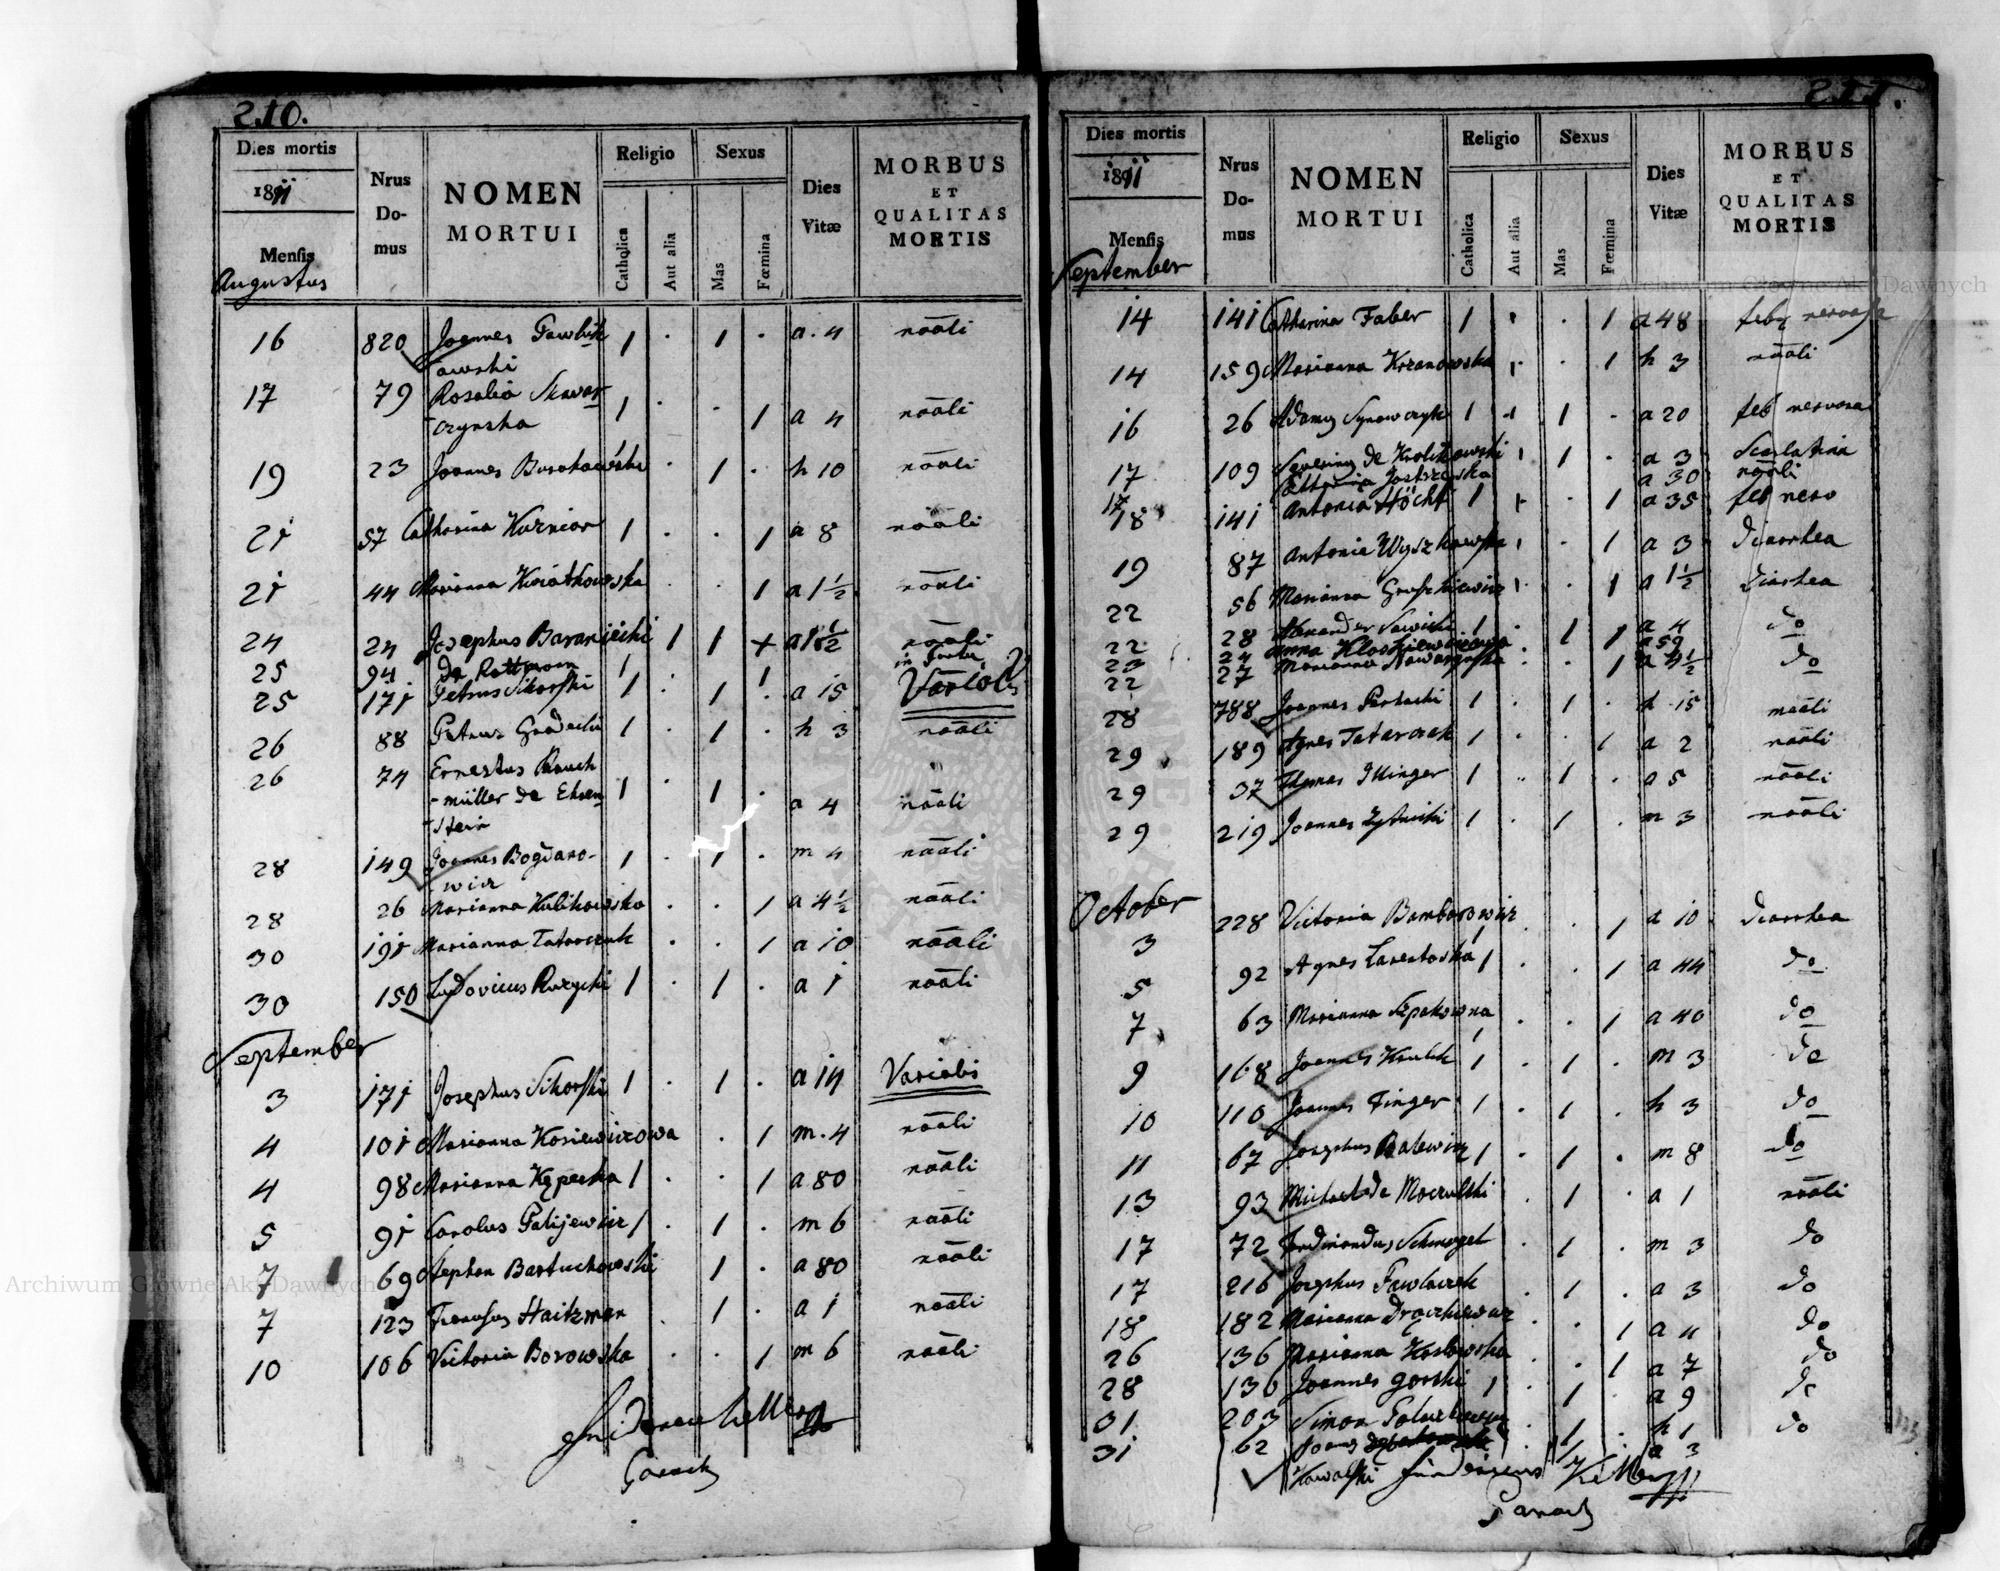 210.
Dies mortis
1811
Mensis
Augustus
Nrus Domus
NOMEN MORTUI
Religio
Catholica
Aut alia
Sexus
Mas
Fœmina
Dies Vitæ
MORBUS ET QUALITAS MORTIS
16 820 Joannes Pawlik 1 . 1 . a. 4 nāali
owski
17 79 Rosalia Skwar 1 . . 1 a 4 nāali
czynska
19 23 Joannes . 1 . h 10 nāali
21 57 Catharina Kurniar 1 . . 1 a 8 nāali
21 44 Marianna Kwiatkowska . . 1 a 1½ nāali
24 24 Josephus Baraniecki 1 1 + nāali
25 94 De Rottmann 1 . 1
25 171 Petrus Sikorski 1 . 1 . a 15 Variolis
26 88 Petrus Gradecki 1 . 1 . h 3 nāali
26 74 Ernestus Rauch
müller de Ehren 1 . 1 . a 4 nāali
stein
28 149 Joannes Bogdano- 1 . 1 . m 4 nāali
wicz
28 26 Marianna Kulikowska . . 1 a 4½ nāali
30 191 Marianna Tatarczuk . . 1 a 10 nāali
30 150 Ludovicus Ruzycki 1 . 1 . a 1 nāali
September
3 171 Josephus Sikorski 1 . 1 . a 14 Variolis
4 101 Marianna Kosiewiczowa . 1 m. 4 nāali
4 98 Marianna Kępecka 1 . . 1 a 80 nāali
5 91 Carolus Palijewicz 1 . 1 . m 6 nāali
7 69 Stephan Bartuchowski 1 . a 80 nāali
7 123 Francisus Haitzman . 1 . a 1 nāali
10 106 Victoria Borowska . . 1 m 6 nāali
Paroch
211.
Dies mortis
1811
Mensis
September
Nrus Domus
NOMEN MORTUI
Religio
Catholica
Aut alia
Sexus
Mas
Fœmina
Dies Vitæ
MORBUS ET QUALITAS MORTIS
14 141 Catharina Faber 1 . . 1 a 48 febr nervosa
14 159 Marianna Krzanowska . . 1 h 3 nāali
16 26 Adamus Synowczyk 1 . 1 . a 20 feb nervosa
17 109 Severinus de Krolikowski 1 . a 3 Scarlatina
17 a 30 nāali
18 141 Antonia Höcht 1 . . 1 a 35 feb nerv
19 87 Antonia Wyszkowska . . 1 a 3 Diarrhea
22 56 Marianna . 1 a 1½ Diarhea
22 28 Alexander Sawicki 1 . 1 . a 4 do
23 24 Anna 1 a 59
22 27 Marianna . . 1 a 4½ do
28 788 Joannes 1 . 1 . d 15 nāali
29 189 Agnes Tatarczak 1 . . 1 a 2 nāali
29 37 Thomas Illinger 1 . 1 . a 5 nāali
29 219 Joannes Zytnicki 1 . 1 . m 3 nāali
October
3 228 Victoria Bamborowicz . . 1 a 10 Diarrhea
5 92 Agnes 1 . . 1 a 44 do
7 63 Marianna Szpakowna 1 . . 1 a 40 do
9 168 Joannes Krulik 1 . 1 . m 3 do
10 110 Joannes Finger 1 . 1 . h 3 do
11 67 Josephus Balewicz 1 . 1 . m 8 do
13 93 Michael de Moczulski . 1 . a 1 nāali
17 72 Ferdinandus Schmegel . 1 . m 3 do
17 216 Josephus Pawlaczek . 1 . a 3 do
18 182 Marianna . . 1 a 4 do
26 136 Marianna Kozlowska . . 1 a 7 do
28 136 Joannes Gorski 1 . 1 . a 9 do
31 203 Simon . 1 . h 1 do
31 62 Joannes 1 a 3
Kowalski
Paroch
Archiwum Główne Akt Dawnych
Archiwum Główne Akt Dawnych